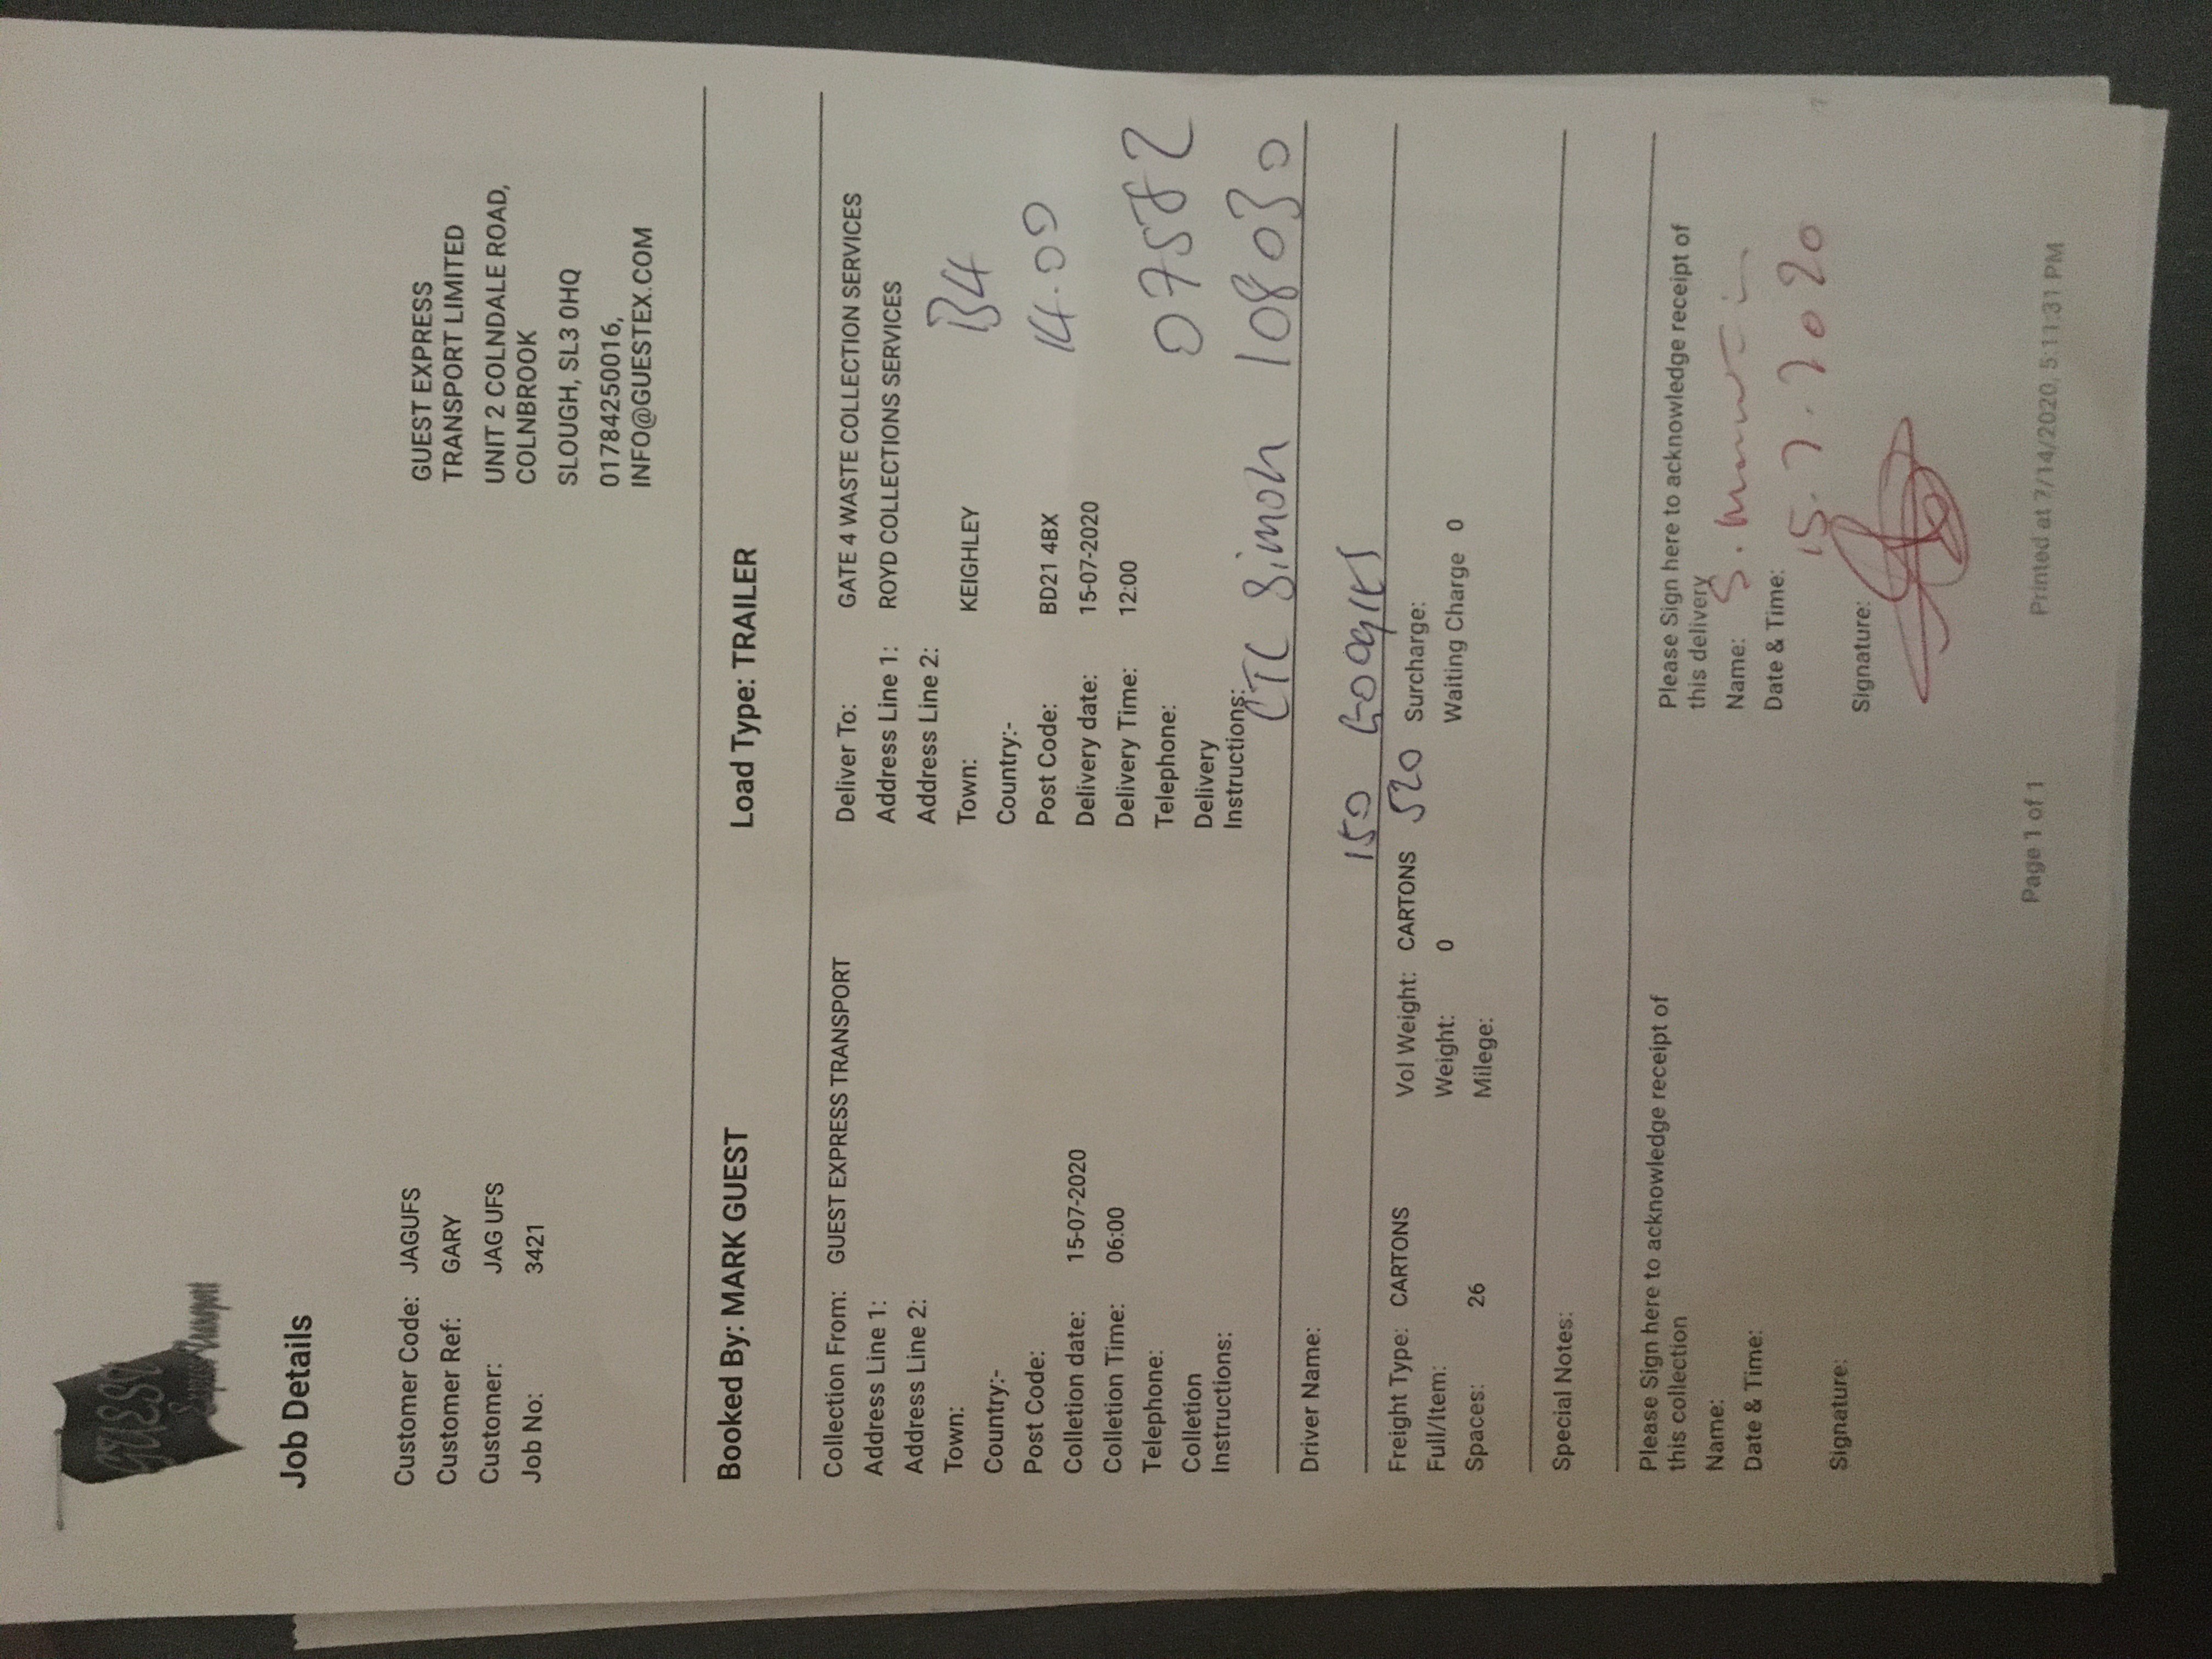 GUEST
Express Transport
Job Details
GUEST EXPRESS
TRANSPORT LIMITED
UNIT 2 COLNDALE ROAD,
COLNBROOK
SLOUGH, SL3 0HQ
01784250016,
INFO@GUESTEX.COM
Customer Code: JAGUFS
Customer Ref: GARY
Customer: JAG UFS
Job No: 3421
Booked By: MARK GUEST Load Type: TRAILER
Collection From: GUEST EXPRESS TRANSPORT
Address Line 1:
Address Line 2:
Town:
Country:-
Post Code:
Colletion date: 15-07-2020
Colletion Time: 06:00
Telephone:
Colletion
Instructions:
Deliver To: GATE 4 WASTE COLLECTION SERVICES
Address Line 1: ROYD COLLECTIONS SERVICES
Address Line 2:
Town: KEIGHLEY B4
Country:-
Post Code: BD21 4BX 14.00
Delivery date: 15-07-2020
Delivery Time: 12:00
Telephone: 07582
Delivery
Instructions: CTC Simon 108030
Driver Name:
150
Freight Type: CARTONS Vol Weight: CARTONS 520 Surcharge:
Full/Item: Weight: 0 Waiting Charge 0
Spaces: 26 Milege:
Special Notes:
Please Sign here to acknowledge receipt of
this collection
Name:
Date & Time:
Signature:
Please Sign here to acknowledge receipt of
this delivery
Name: S.
Date & Time: 15.7.2020
Signature:
Page 1 of 1 Printed at 7/14/2020, 5:11:31 PM